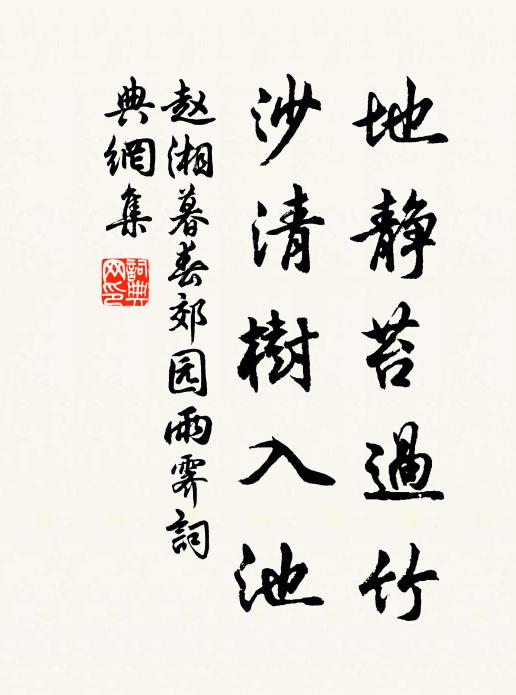 地静苔過竹
沙清樹入池
赵湘暮春郊园雨霁詞
典網集
詞典
网印